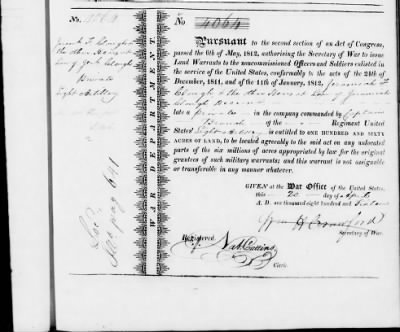 No.
No 4064
Jeremiah F. Clough &
the other Heirs at
Law of
Private
Light Artillery
WAR DEPARTMENT.
Pursuant to the second section of an Act of Congress,
passed the 6th of May, 1812, authorising the Secretary of War to issue
Land Warrants to the noncommissioned Officers and Soldiers enlisted in
the service of the United States, conformably to the acts of the 24th of
December, 1811, and of the 11th of January, 1812, Jeremiah F.
Clough & the other Heirs at Law of Jeremiah
Clough Deceased
late a private in the company commanded by Captain
of the Regiment United
States' Light Artillery is entitled to ONE HUNDRED AND SIXTY
ACRES OF LAND, to be located agreeably to the said act on any unlocated
parts of the six millions of acres appropriated by law for the original
grantees of such military warrants; and this warrant is not assignable
or transferable in any manner whatever.
GIVEN at the War Office of the United States,
this 20 day of April
A. D. one thousand eight hundred and Sixteen
Wm H Crawford
Secretary of War.
Registered
Nat Cutting
Clerk.
641